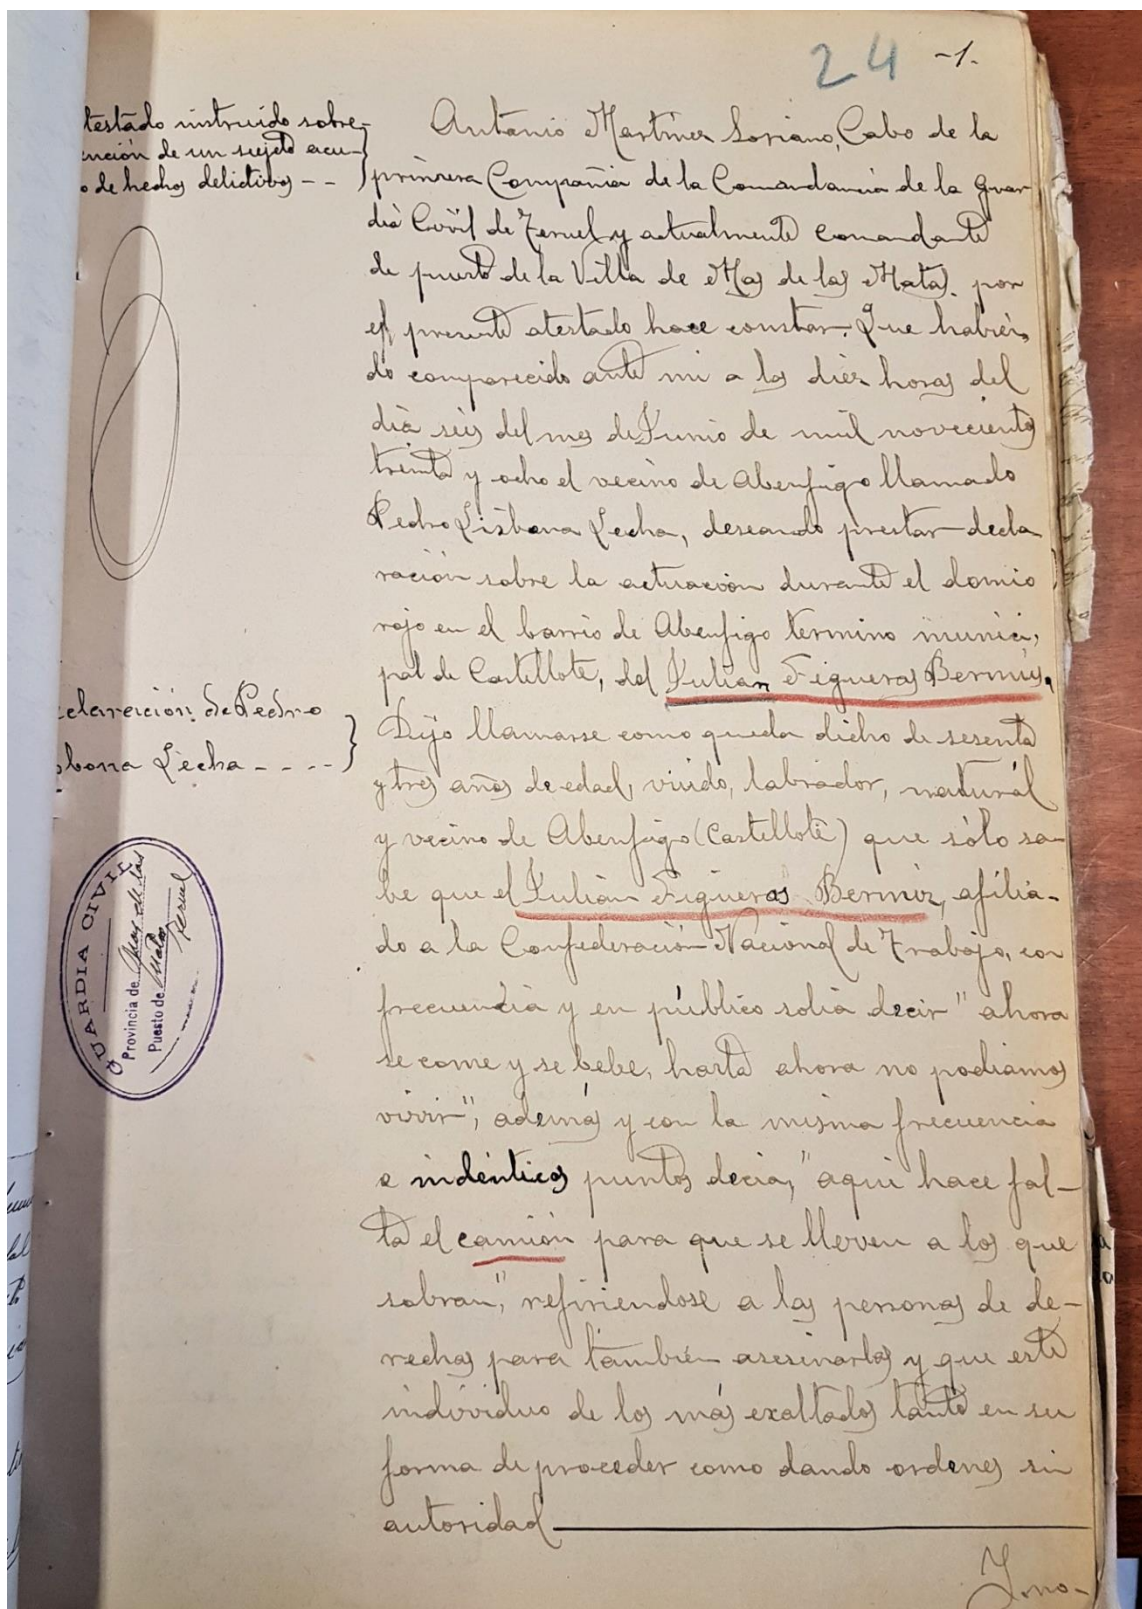 24 -1.
testado instruido sobre
ención de un sujeto acu-
o de hechos delictivos - -
Antonio Martínez Soriano, Cabo de la
primera Compañia de la Comandancia de la Guar
dia Civil de Teruel y actualmente comandante
de puesto de la Villa de Mas de las Matas. por
el presente atestado hace constar: Que habién,
do comparecido ante mi a las diez horas del
día seis del mes de Junio de mil novecientos
treinta y ocho el vecino de Abenfigo llamado
Pedro Lisbona Lecha, deseando prestar decla
ración sobre la actuación durante el domio
rojo en el barrio de Abenfigo termino munici,
pal de Castellote, del Julian Figueras Bermus.
eclaración de Pedro
sbona Lecha - - - -
Dijo llamarse como queda dicho de sesenta
y tres años de edad, viudo, labrador, naturál
y vecino de Abenfigo (Castellote) que sólo sa-
be que el Julián Figueras Bermuz, afilia-
do a la Confederación Nacional de Trabajo, con
frecuencia y en público solia decir "ahora
se come y se bebe, hasta ahora no podiamos
vivir", además y con la misma frecuencia
e indénticos puntos decia, "aqui hace fal-
ta el camión para que se lleven a los que
sobran", refiriendose a las personas de de-
rechas para también asesinarlas y que este
individuo de los más exaltados tanto en su
forma de proceder como dando ordenes sin
autoridad
Y no-
GUARDIA CIVIL
Provincia de Mas de las
Puesto de Matas
Teruel